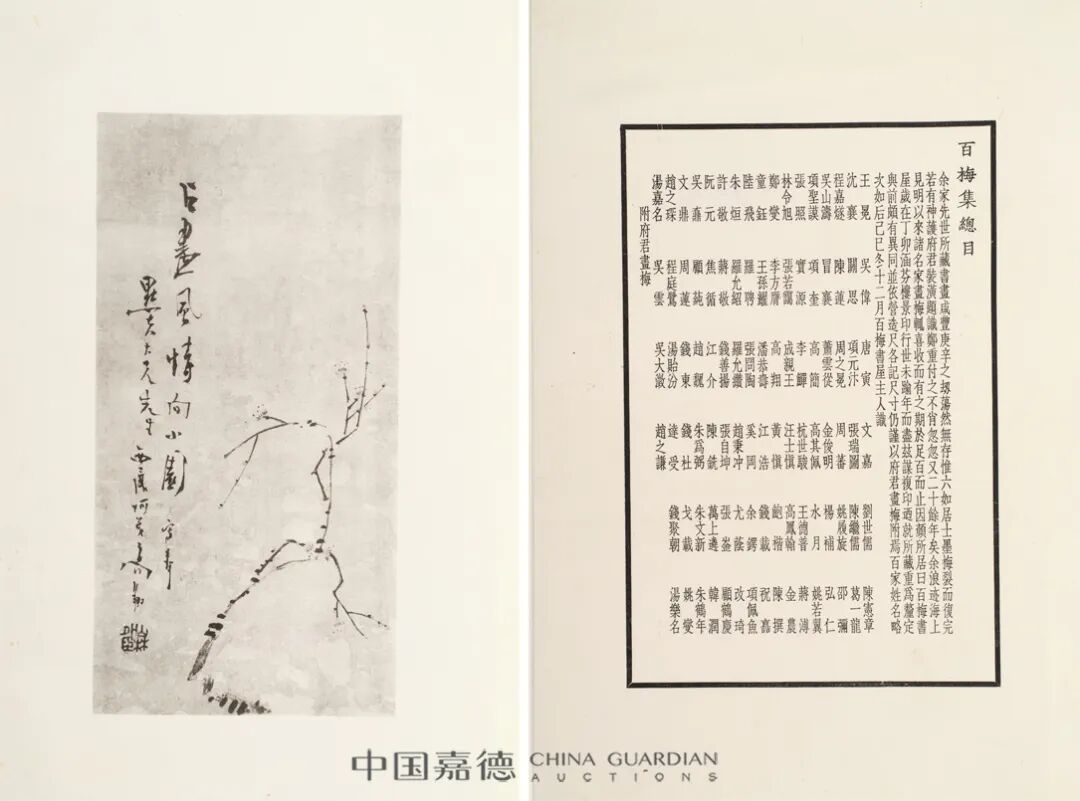 占盡風情向小園 寫奉
大兄先生
百梅集總目
余家先世所藏書畫咸豐庚辛之刼蕩然無存惟六如居士墨梅裂而復完
若有神護府君裝潢題識鄭重付之不肖忽忽又二十餘年矣余浪迹海上
見明以來諸名家畫梅輒喜收而有之期於足百而止因顏所居曰百梅書
屋歲在丁卯涵芬樓景印行世未踰年而盡茲謀複印迺就所藏重為釐定
與前頗有異同並依營造尺各記尺寸仍謹以府君畫梅附焉百家姓名略
次如后己巳冬十二月百梅書屋主人識
王冕 吳偉 唐寅 文嘉 劉世儒 陳憲章
沈襄 關思 項元汴 張瑞圖 陳繼儒 葛一龍
程嘉燧 陳蓮 周之冕 周蕃 姚履旋 邵彌
吳山濤 冒襄 蕭雲從 金俊明 楊補 弘仁
項聖謨 項奎 高簡 高其佩 水月 姚若翼
張照 實源 李鱓 杭世駿 王德普 蔣溥
林令旭 張若靄 成親王 汪士慎 高鳳翰 金農
鄭燮 李方膺 高翔 黃慎 鮑楷 陳撰
童鈺 王孫耀 潘恭壽 江浩 錢載 祝嘉
陸飛 羅聘 張問陶 奚岡 余鍔 項佩魚
朱烜 羅允紹 羅允纘 趙秉冲 尤蔭 改琦
許敬 蔣敬 錢善揚 張自坤 張崟 顧鶴慶
阮元 焦循 江介 陳銑 萬上遴 韓潤
吳鼒 顧蒓 趙魏 朱為弼 朱文新 朱鶴年
文鼎 周蓮 錢東 錢杜 戈載 姚燮
趙之琛 程庭鷺 湯貽汾 達受 錢聚朝 湯樂名
湯嘉名 吳雲 吳大澂 趙之謙
附府君畫梅
中国嘉德 CHINA GUARDIAN
AUCTIONS